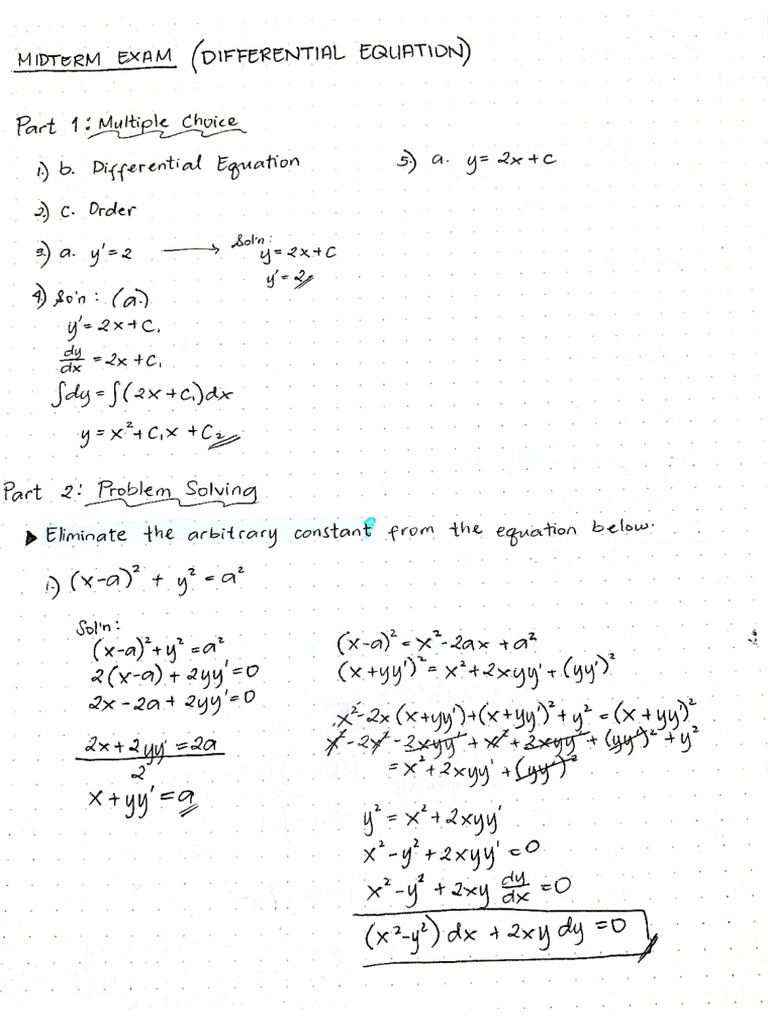 MIDTERM EXAM (DIFFERENTIAL EQUATION)
Part 1: Multiple Choice
1.) b. Differential Equation
2.) c. Order
3.) a. y' = 2 → Sol'n: y = 2x + C
y' = 2
4.) So'n: (a.)
y' = 2x + C₁
dy/dx = 2x + C₁
∫dy = ∫(2x + C₁)dx
y = x² + C₁x + C₂
5.) a. y = 2x + C
Part 2: Problem Solving
▶ Eliminate the arbitrary constant from the equation below.
1.) (x-a)² + y² = a²
Sol'n:
(x-a)² + y² = a²
2(x-a) + 2yy' = 0
2x - 2a + 2yy' = 0
2x + 2yy' = 2a
2
x + yy' = a
(x-a)² = x² - 2ax + a²
(x+yy')² = x² + 2xyy' + (yy')²
x² - 2x(x+yy') + (x+yy')² + y² = (x+yy')²
x² - 2x² - 2xyy' + x² + 2xyy' + (yy')² + y²
= x² + 2xyy' + (yy')²
y² = x² + 2xyy'
x² - y² + 2xyy' = 0
x² - y² + 2xy dy/dx = 0
(x² - y²) dx + 2xy dy = 0